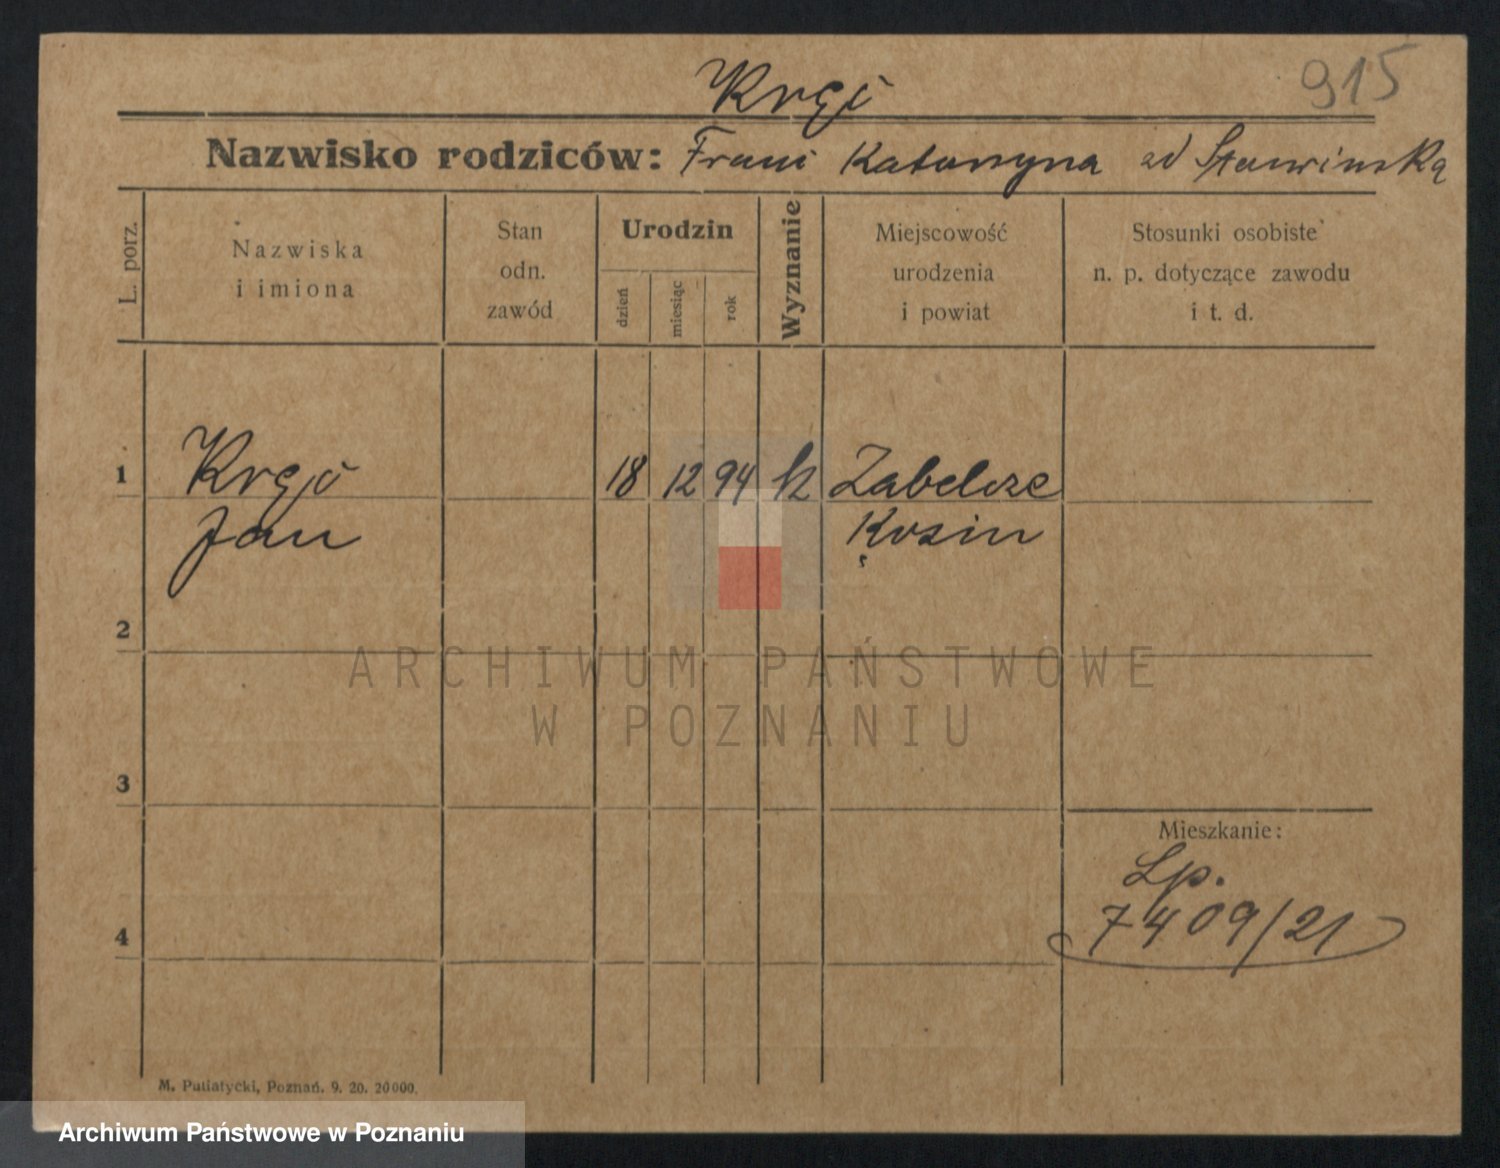 915
Kręć
Nazwisko rodziców: Franc Katarzyna zd Stawinską
L. porz.
Nazwiska
i imiona
Stan
odn.
zawód
Urodzin
dzień
miesiąc
rok
Wyznanie
Miejscowość
urodzenia
i powiat
Stosunki osobiste
n. p. dotyczące zawodu
i t. d.
1 18 12 94 k
Jan
2
ARCHIWUM PAŃSTWOWE
W POZNANIU
3
Mieszkanie:
Lp.
7409/21
4
M. Putiatycki, Poznań. 9. 20. 20000.
Archiwum Państwowe w Poznaniu